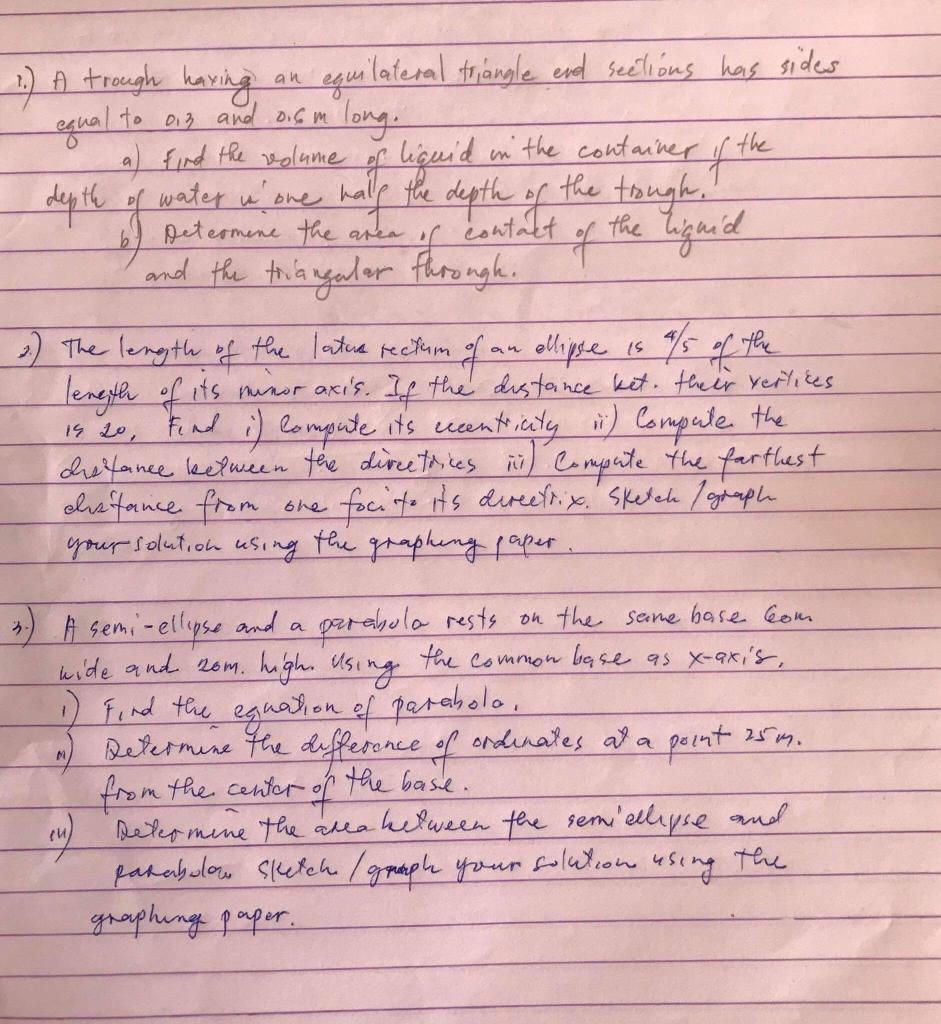 1.) A trough having an equilateral triangle end sections has sides
equal to 0.3 and 0.6 m long.
a) Find the volume of liquid in the container if the
depth of water is one half the depth of the trough.
b) Determine the area of contact of the liquid
and the triangular through.
2.) The length of the latus rectum of an ellipse is 4/5 of the
length of its minor axis. If the distance bet. their vertices
is 20, Find i) Compute its eccentricity ii) Compute the
distance between the directrices iii) Compute the farthest
distance from one foci to its directrix. Sketch / graph
your solution using the graphing paper.
3.) A semi-ellipse and a parabola rests on the same base 60m
wide and 20m. high. Using the common base as x-axis,
i) Find the equation of parabola.
ii) Determine the difference of ordinates at a point 25 m.
from the center of the base.
iii) Determine the area between the semi ellipse and
parabola. Sketch / graph your solution using the
graphing paper.